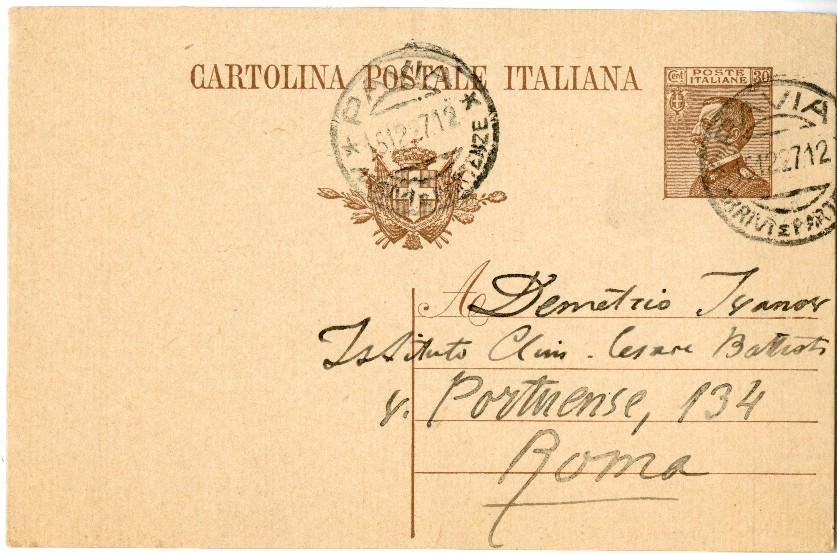 CARTOLINA POSTALE ITALIANA
Cent POSTE ITALIANE 30
PAVIA
12 27 12
PAVIA
12 27 12
A Demetrio Ivanov
Istituto Clin. Cesare Battisti
v. Portuense, 134
Roma